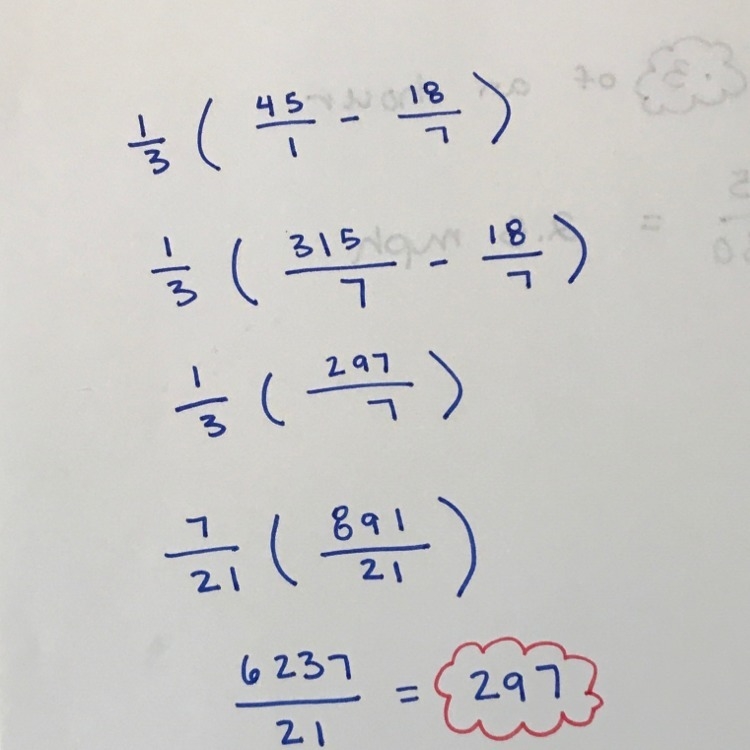 1/3 ( 45/1 - 18/7 )
1/3 ( 315/7 - 18/7 )
1/3 ( 297/7 )
7/21 ( 891/21 )
6237/21 = 297